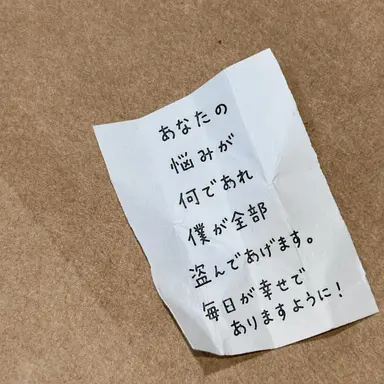 あなたの
悩みが
何であれ
僕が全部
盗んであげます。
毎日が幸せで
ありますように!